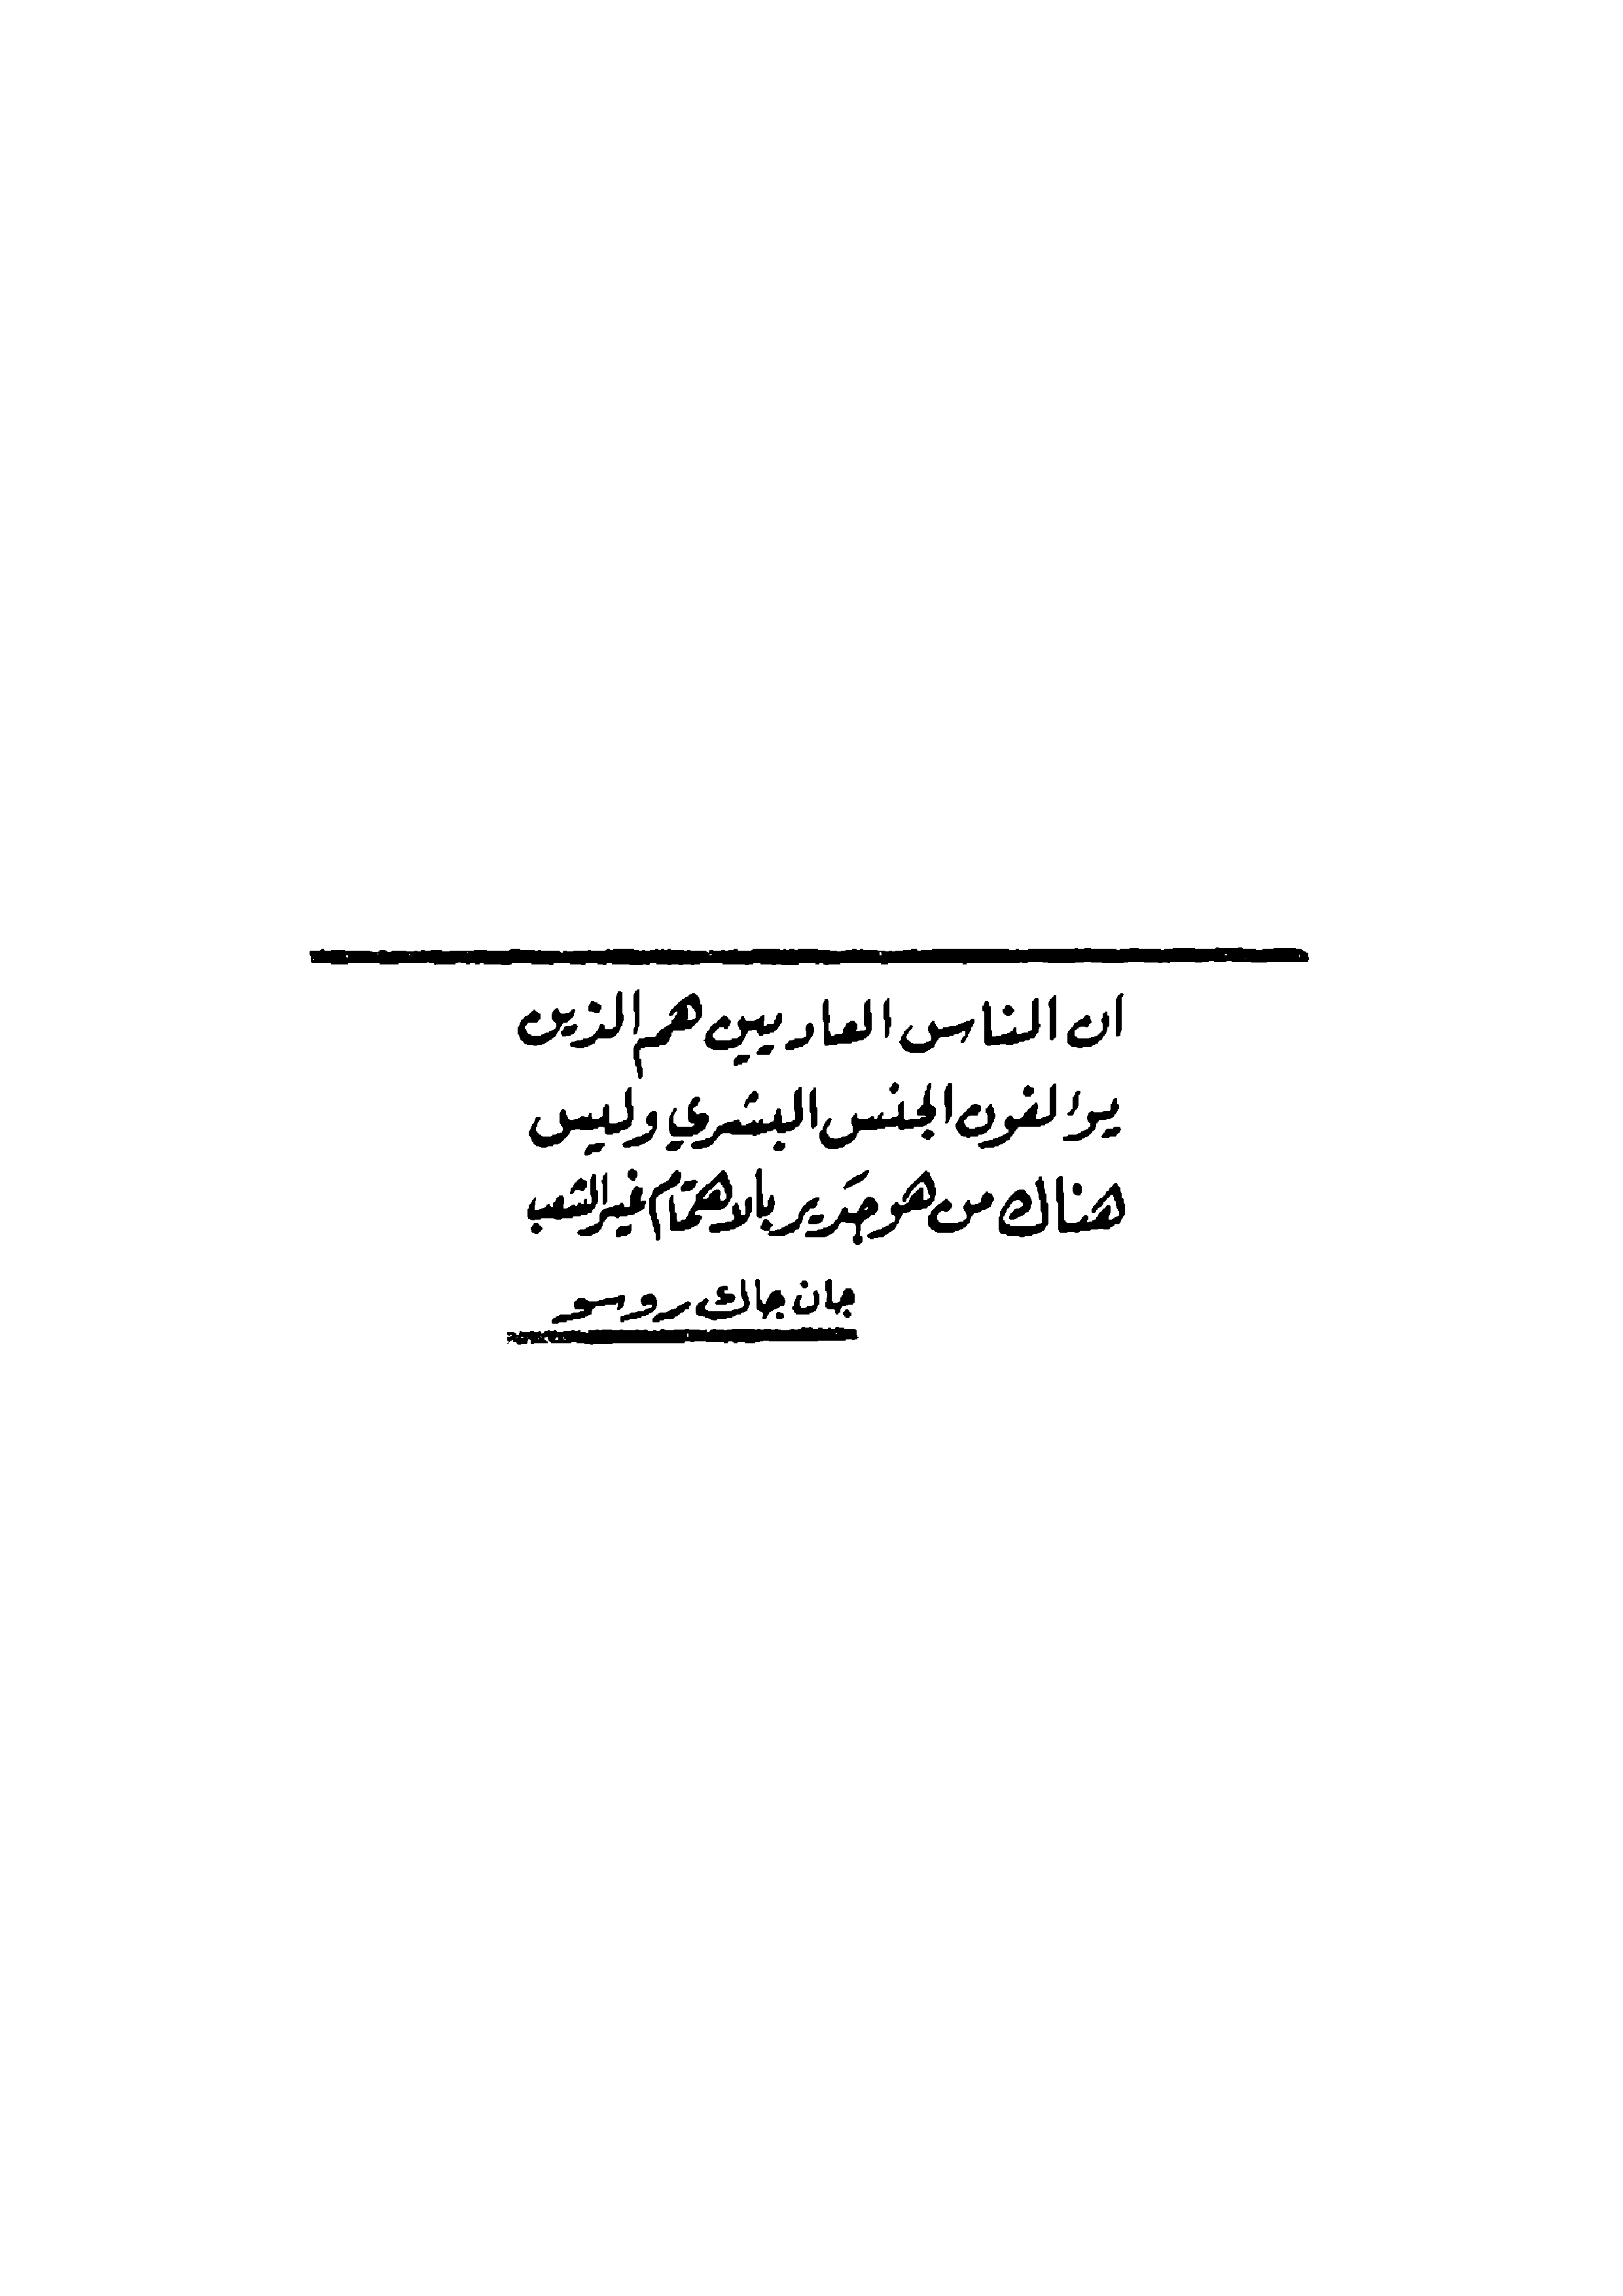 ان الناس العاديين هم الذين
يؤلفون الجنس البشري وليس
هناك من هو جَدير بالاهتمام غير الشعب
جان جاك روسو